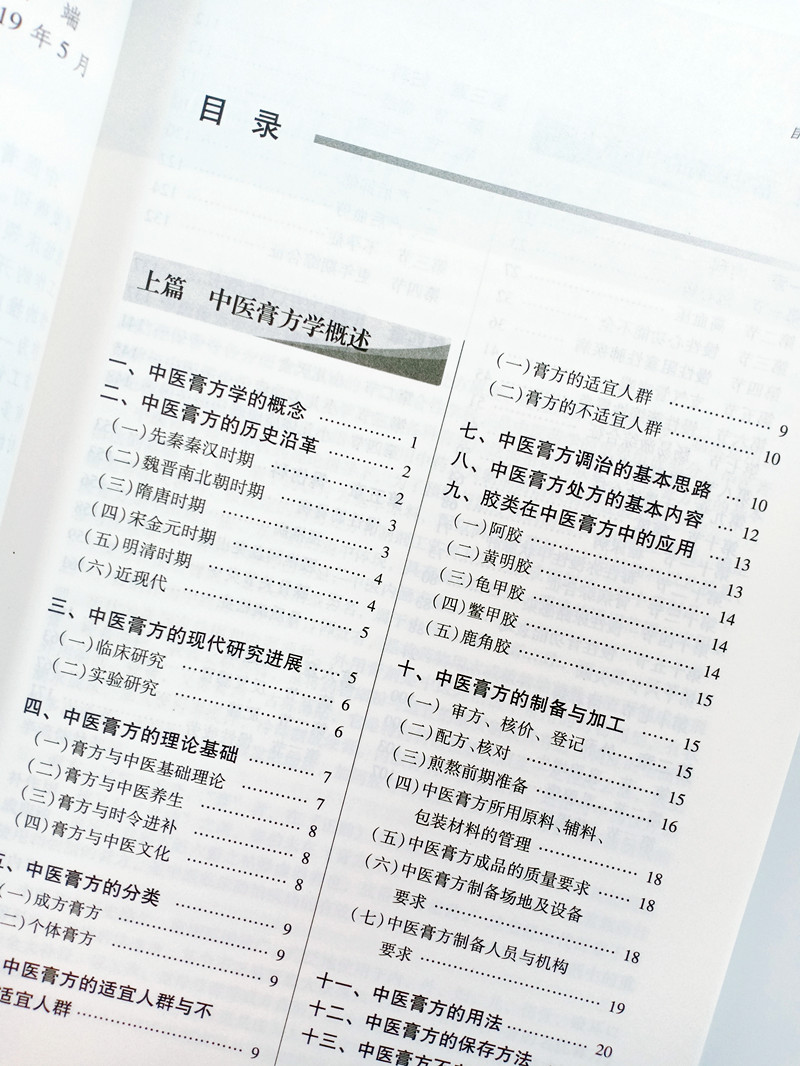 端
19 年 5 月
目 录
上篇 中医膏方学概述
一、中医膏方学的概念 ………… 1
二、中医膏方的历史沿革 ……… 2
(一)先秦秦汉时期 …………… 2
(二)魏晋南北朝时期 ………… 3
(三)隋唐时期 ………………… 3
(四)宋金元时期 ……………… 4
(五)明清时期 ………………… 4
(六)近现代 …………………… 5
三、中医膏方的现代研究进展 … 5
(一)临床研究 ………………… 6
(二)实验研究 ………………… 6
四、中医膏方的理论基础 ……… 7
(一)膏方与中医基础理论 …… 7
(二)膏方与中医养生 ………… 8
(三)膏方与时令进补 ………… 8
(四)膏方与中医文化 ………… 8
五、中医膏方的分类 …………… 9
(一)成方膏方 ………………… 9
(二)个体膏方 ………………… 9
中医膏方的适宜人群与不
适宜人群 ……………………… 9
(一)膏方的适宜人群 ………… 9
(二)膏方的不适宜人群 ……… 10
七、中医膏方调治的基本思路 … 10
八、中医膏方处方的基本内容 … 12
九、胶类在中医膏方中的应用 … 13
(一)阿胶 ……………………… 13
(二)黄明胶 …………………… 14
(三)龟甲胶 …………………… 14
(四)鳖甲胶 …………………… 14
(五)鹿角胶 …………………… 15
十、中医膏方的制备与加工 …… 15
(一) 审方、核价、登记 ……… 15
(二)配方、核对 ……………… 15
(三)煎熬前期准备 …………… 16
(四)中医膏方所用原料、辅料、
包装材料的管理 ……………… 18
(五)中医膏方成品的质量要求 … 18
(六)中医膏方制备场地及设备
要求 …………………………… 18
(七)中医膏方制备人员与机构
要求 …………………………… 19
十一、中医膏方的用法 ………… 20
十二、中医膏方的保存方法
十三、中医膏方不